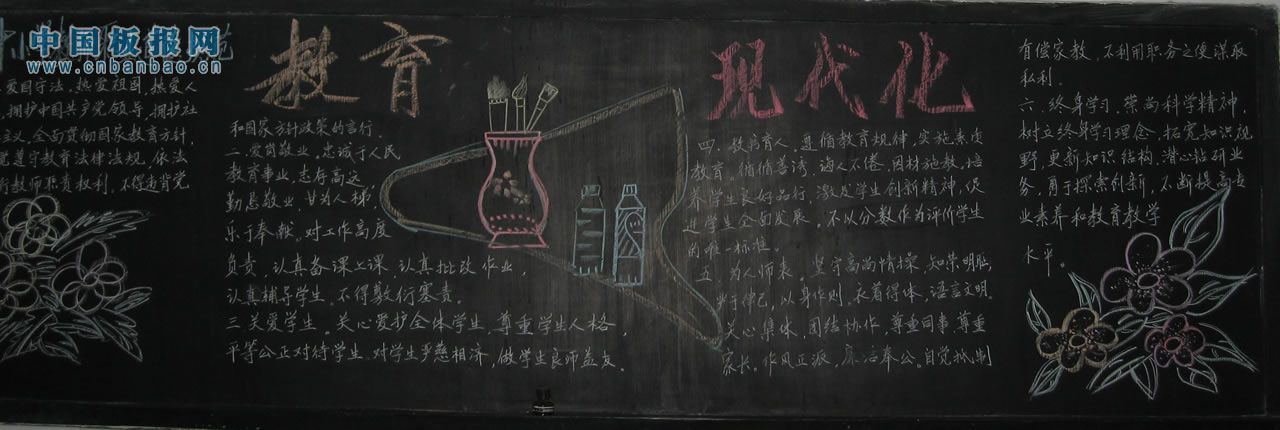 中国板报网
www.cnbanbao.cn
教育
现代化
爱国守法。热爱祖国,热爱人
拥护中国共产党领导,拥护社
主义。全面贯彻国家教育方针,
觉遵守教育法律法规,依法
行教师职责权利。不得违背党
和国家方针政策的言行。
二、爱岗敬业。忠诚于人民
教育事业,志存高远,
勤恳敬业,甘为人梯,
乐于奉献。对工作高度
负责,认真备课上课,认真批改作业,
认真辅导学生。不得敷衍塞责。
三、关爱学生。关心爱护全体学生,尊重学生人格,
平等公正对待学生。对学生严慈相济,做学生良师益友。
四、教书育人。遵循教育规律,实施素质
教育。循循善诱,诲人不倦,因材施教。培
养学生良好品行,激发学生创新精神,促
进学生全面发展。不以分数作为评价学生
的唯一标准。
五、为人师表。坚守高尚情操,知荣明耻,
严于律己,以身作则。衣着得体,语言文明。
关心集体,团结协作,尊重同事,尊重
家长。作风正派,廉洁奉公。自觉抵制
有偿家教,不利用职务之便谋取
私利。
六、终身学习。崇尚科学精神,
树立终身学习理念,拓宽知识视
野,更新知识结构。潜心钻研业
务,勇于探索创新,不断提高专
业素养和教育教学
水平。